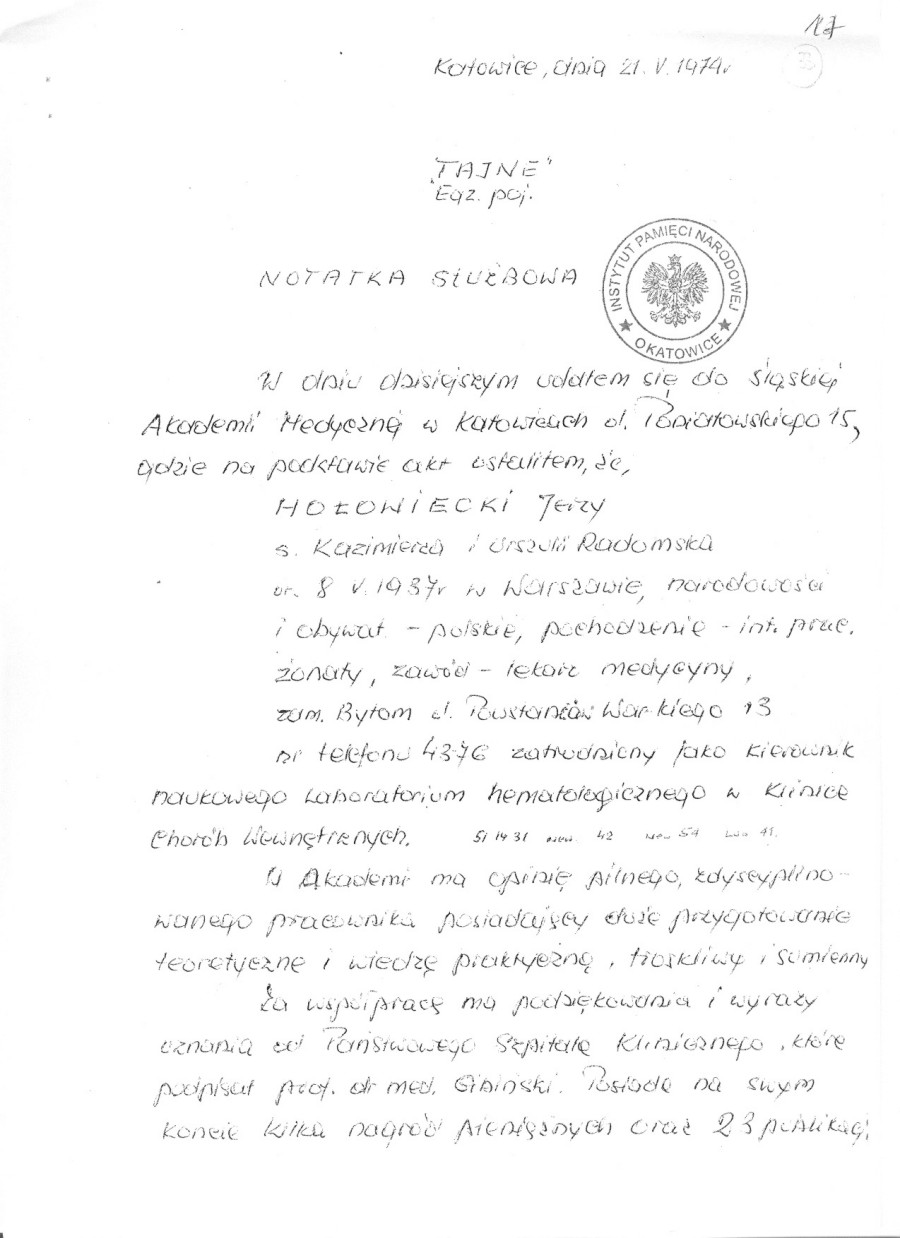 17
Katowice, dnia 21. V. 1974r
"TAJNE"
Egz. poj.
NOTATKA SŁUŻBOWA
INSTYTUT PAMIĘCI NARODOWEJ
OKATOWICE
W dniu dzisiejszym udałem się do Śląskiej
Akademii Medycznej w Katowicach ul. Poniatowskiego 15,
gdzie na podstawie akt ustaliłem, że,
HOŁOWIECKI Jerzy
s. Kazimierza i Urszuli Radomska
ur. 8 V. 1937r w Warszawie, narodowości
i obywat - polskie, pochodzenie - int. prac.
żonaty, zawód - lekarz medycyny,
zam. Bytom ul. Powstańców War-kiego 13
nr telefonu 4376 zatrudniony jako kierownik
naukowego Laboratorium hematologicznego w Klinice
Chorób Wewnętrznych. 51 14 31 wew. 42 wew 54
W Akademi ma opinię pilnego, zdyscyplino-
wanego pracownika posiadający duże przygotowanie
teoretyczne i wiedzę praktyczną, troskliwy i sumienny
Za współpracę ma podziękowania i wyrazy
uznania od Państwowego Szpitala Klinicznego, które
podpisał prof. dr med. Gibiński. Posiada na swym
koncie kilka nagród pieniężnych oraz 23 publikacj,